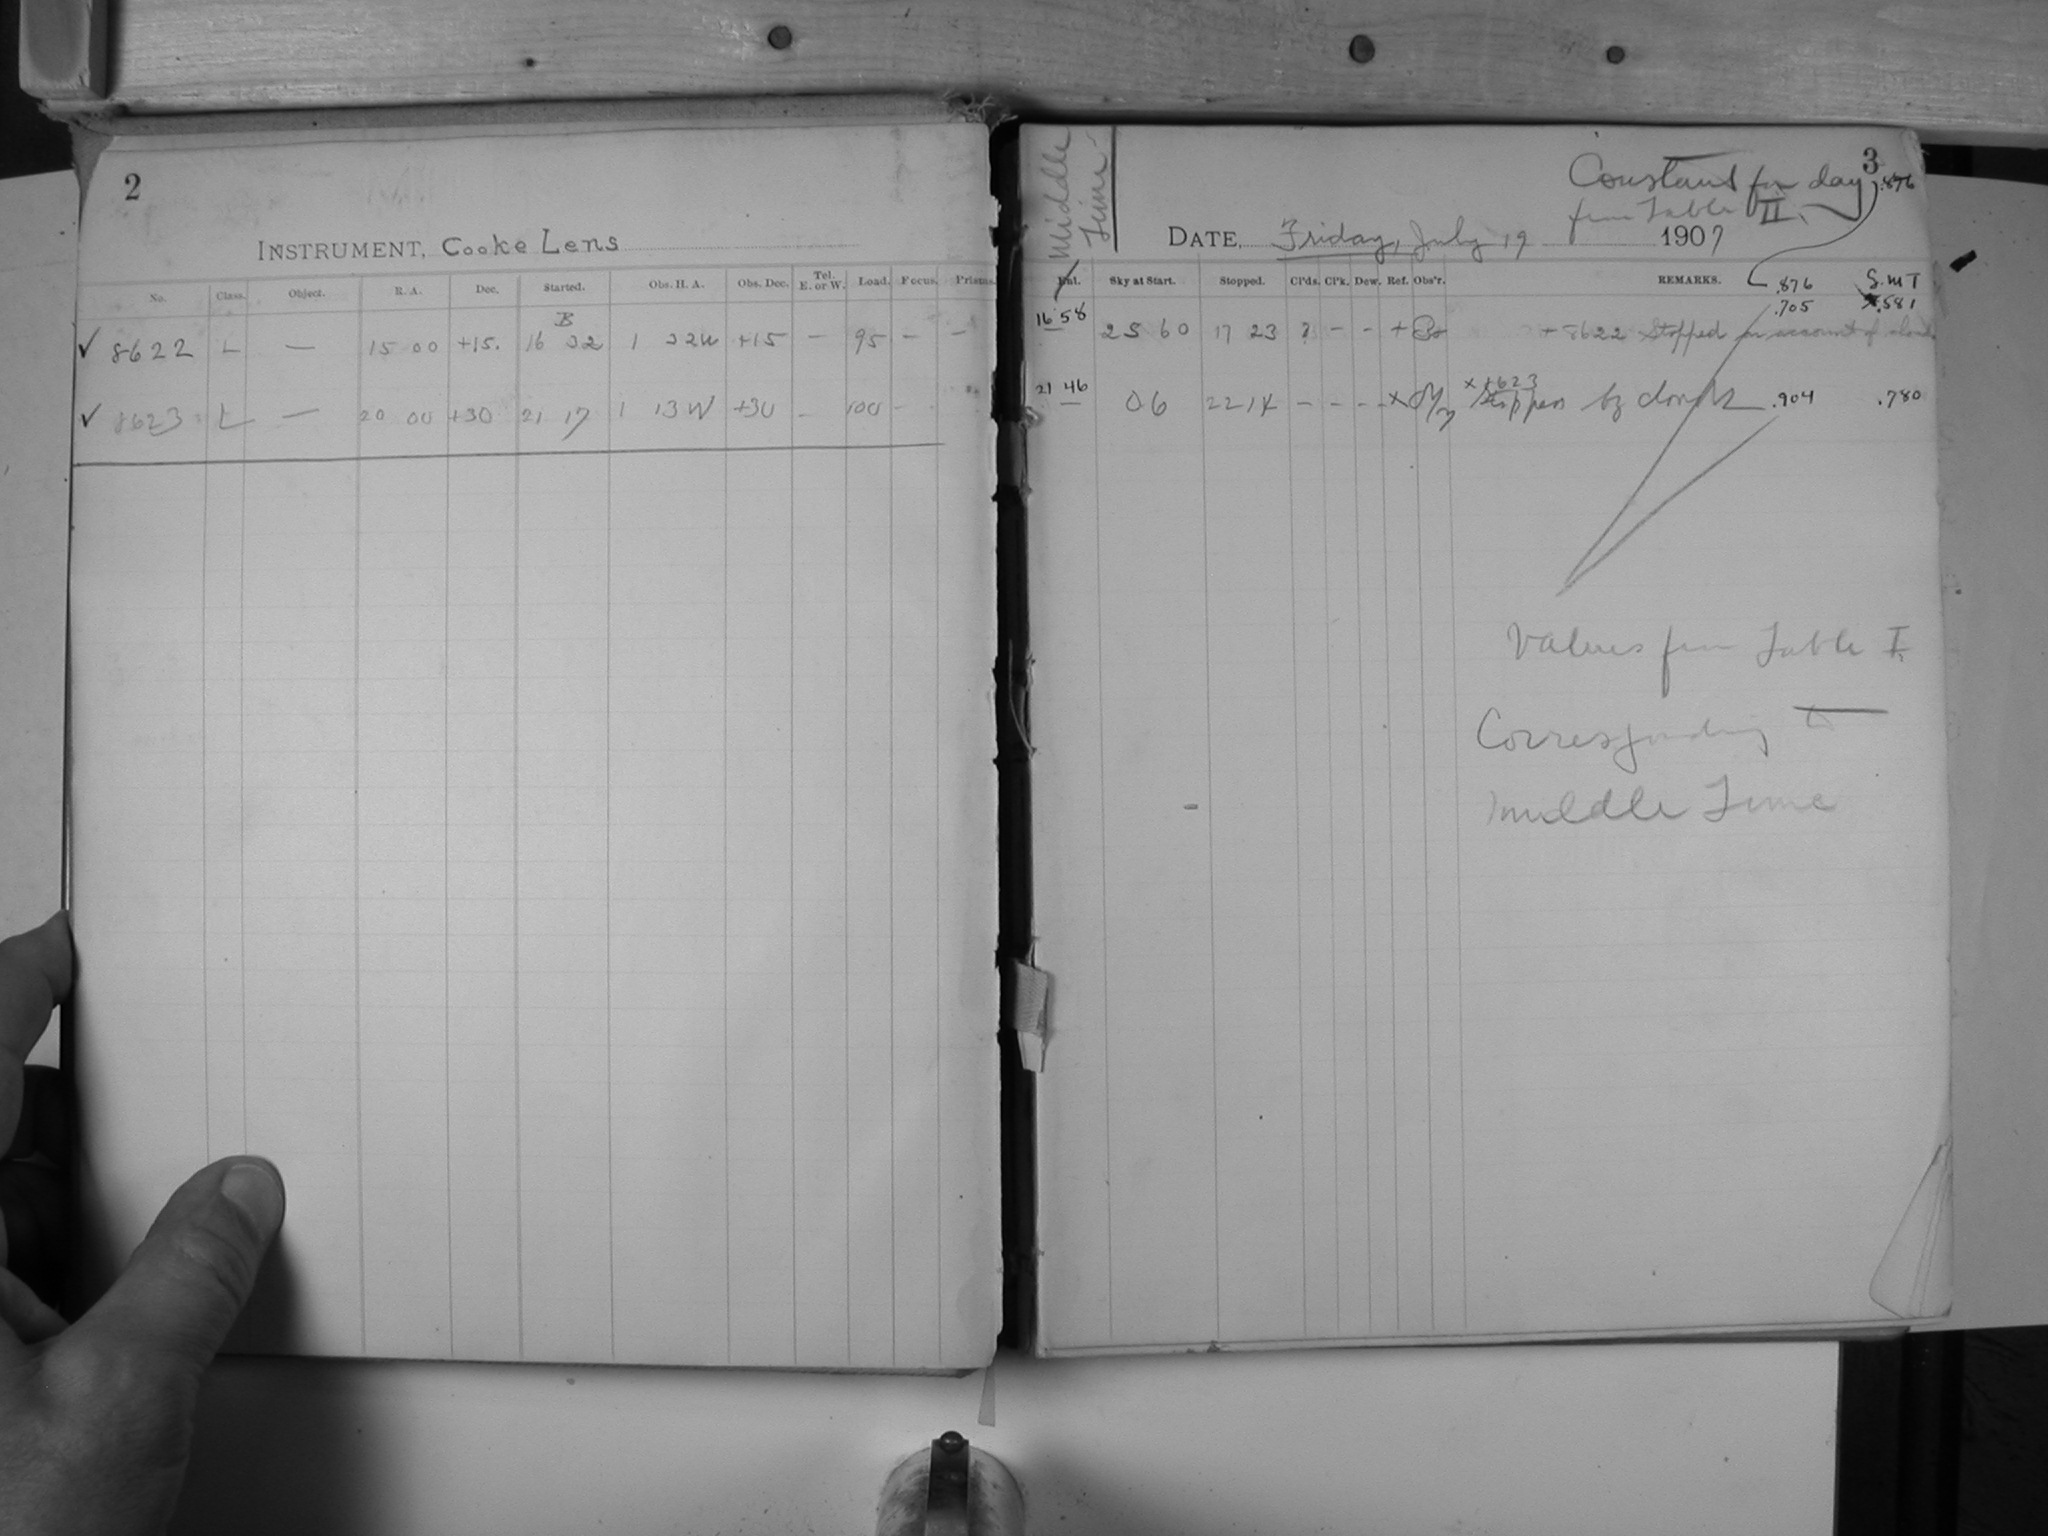 2
INSTRUMENT, Cooke Lens
No. Class. Object. R. A. Dec. Started. Obs. H. A. Obs. Dec. Tel. E. or W. Load. Focus. Prisms.
B
✓ 8622 L — 15 00 +15. 16 32 1 32W +15 — 95 — —
✓ 8623 L — 20 00 +30 21 17 1 13W +30 — 100 —
3
Middle
Time
Constant for day .876
from Table II.
DATE, Friday, July 19 1907
Sky at Start. Stopped. Cl'ds. Cl'k. Dew. Ref. Obs'r. REMARKS. .876 S.M.T
.705 .581
16 58 25 60 17 23 - - + + 8622 Stopped on account of clouds
21 46 06 22 14 - - - - x x 8623 Stopped by clouds .904 .780
Values from Table I.
Corresponding to
Middle Time